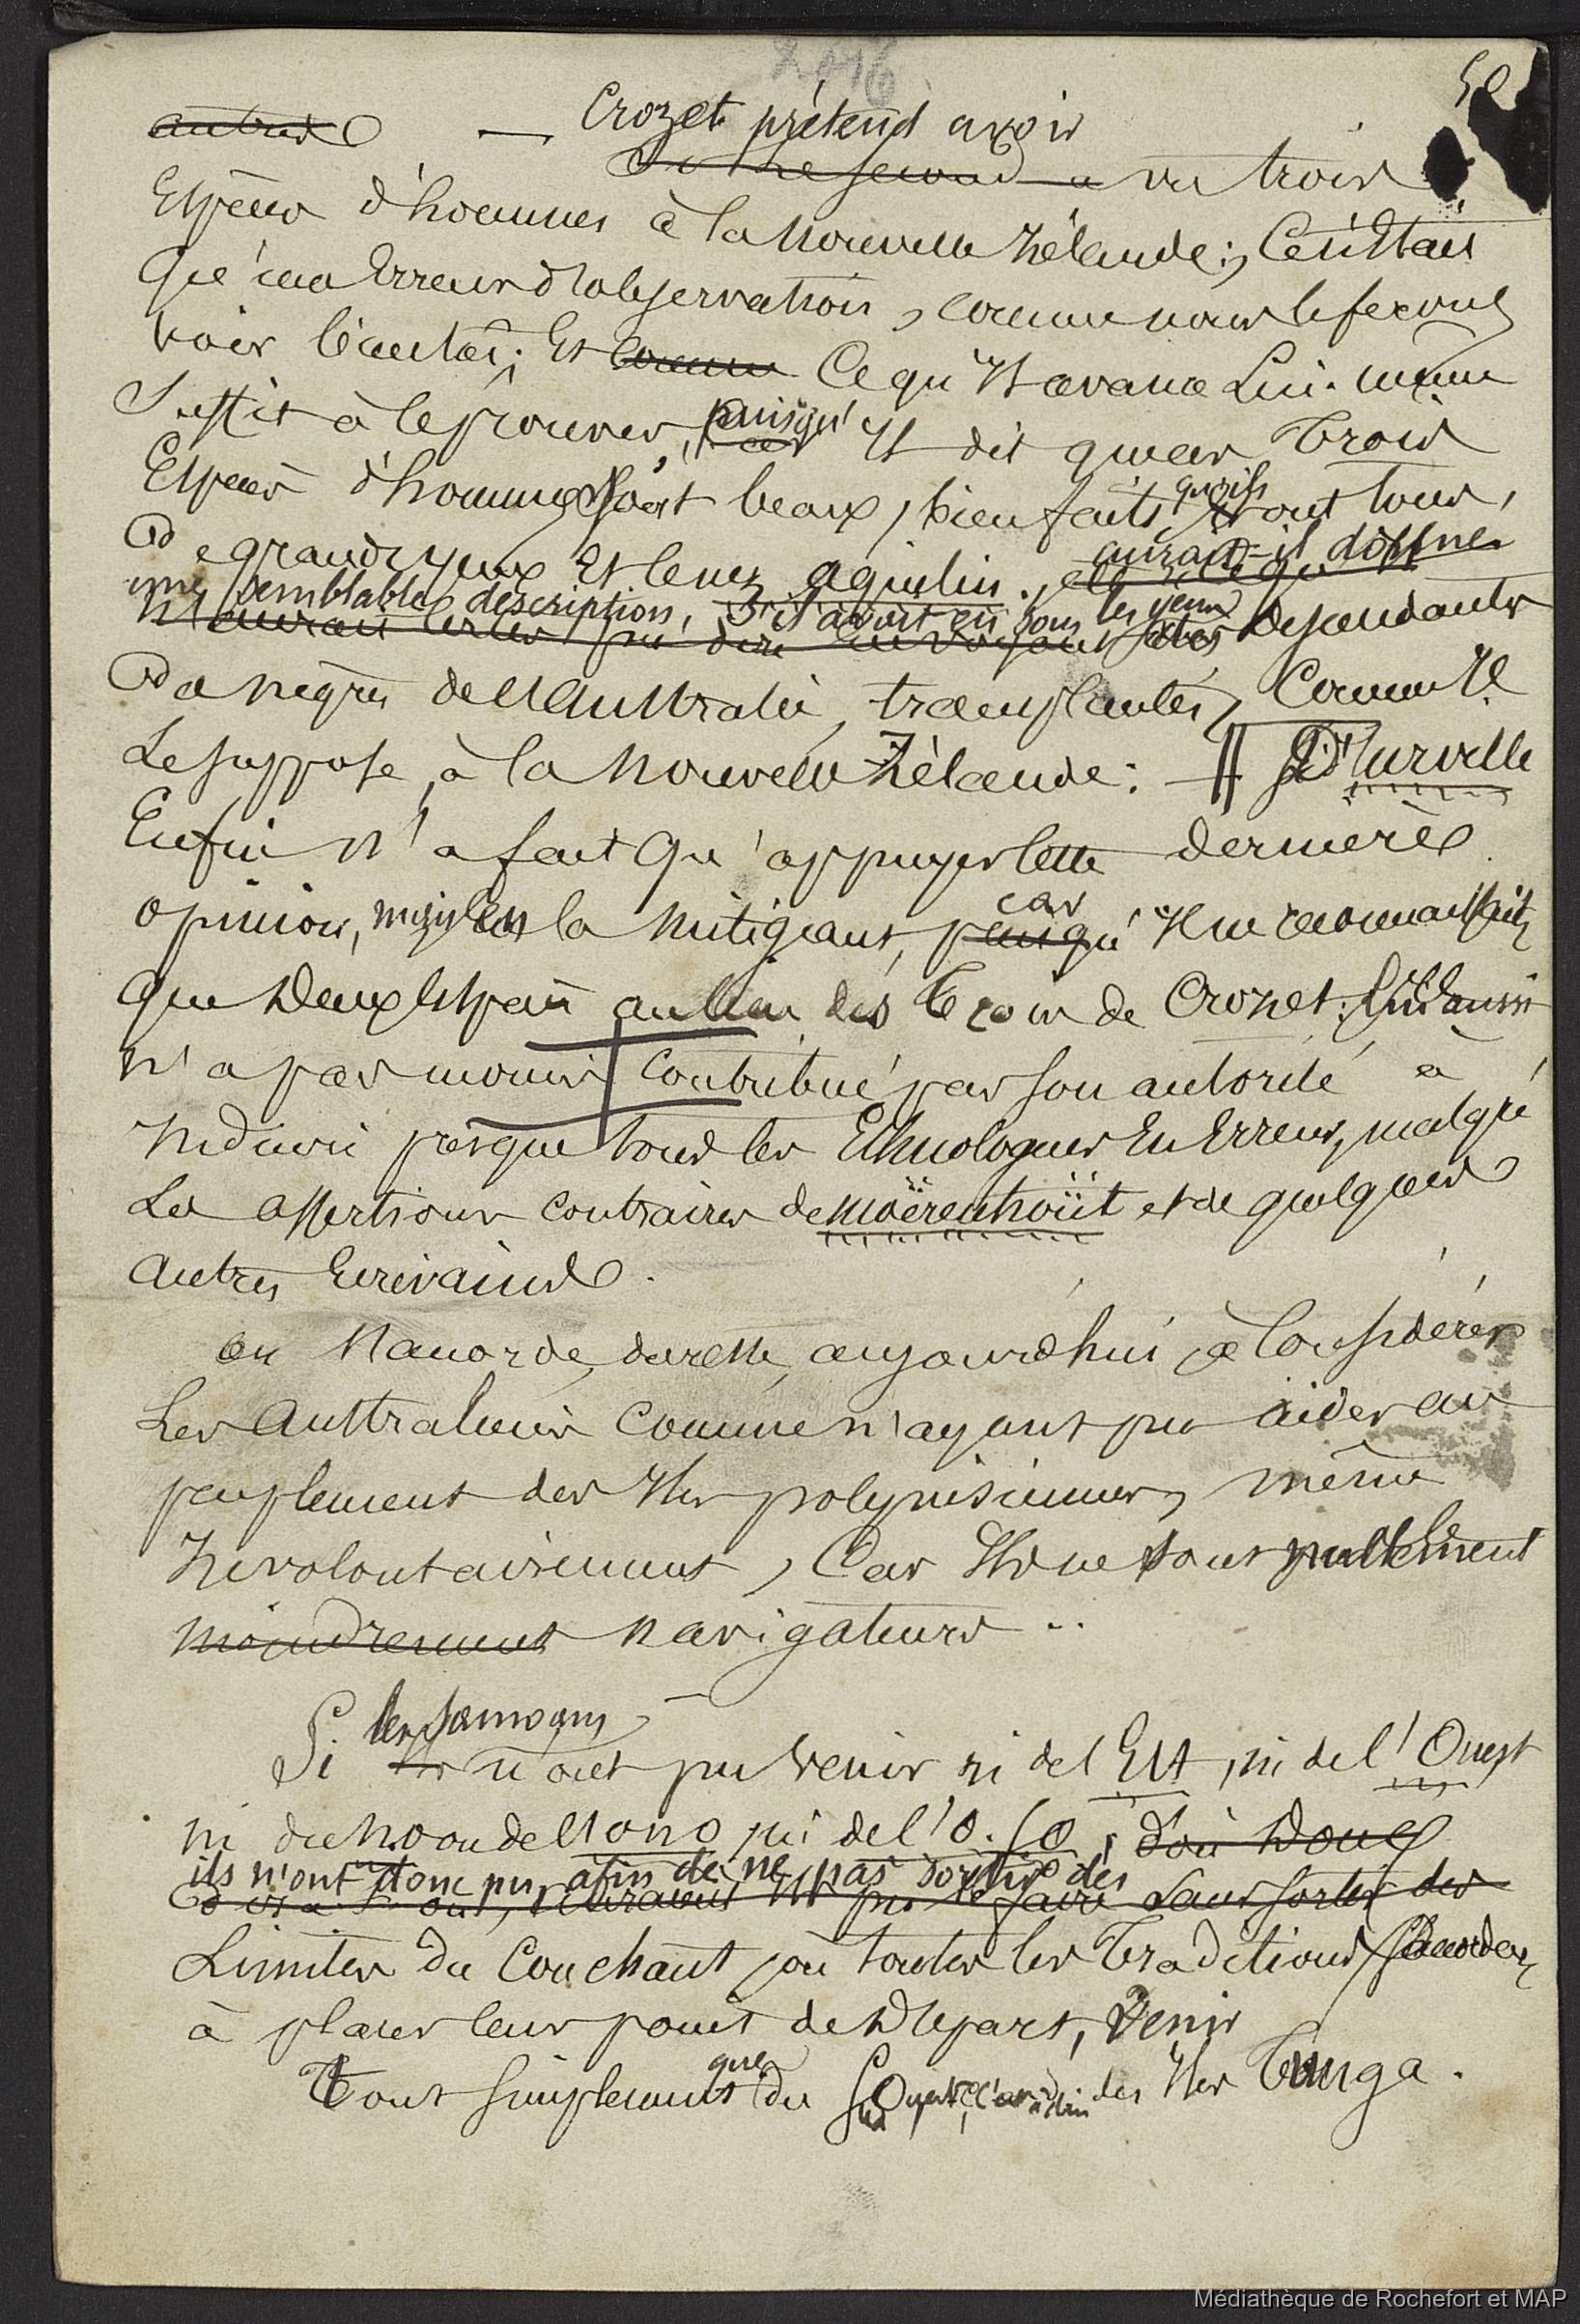 50
autres — Crozet prétend avoir
vu trois
Espèces d'hommes à la Nouvelle Zélande; Ce n'était
qu'une Erreur d'observation, comme nous le ferons
voir bientôt; Et comme Ce qu'Il avance Lui-même
Suffit à le prouver, puisqu' car Il dit que ces Trois
Espèces d'hommes sont beaux, bienfaits, qu'ils ont tous,
De grands yeux Et le nez aquilin. aurait-il donné
une semblable description, s'il avait eu sous les yeux des descendants
De nègres de l'Australie, transplantés, Comme Il
Le suppose, à la Nouvelle Zélande: — D'Urville
Enfin n'a fait qu'appuyer cette dernière
opinion, mais en la mitigeant, car puisqu' Il ne reconnaissait
que Deux Espèces au lieu des Trois de Crozet. Lui aussi
n'a pas moins contribué par son autorité à
Induire presque tous les Ethnologues En Erreur, malgré
Les assertions contraires de Moërenhoüt et de quelques
autres Ecrivains.
on s'accorde, du reste, aujourd'hui, à Considérer
Les Australiens comme n'ayant pu aider au
peuplement des Iles polynésiennes, même
Involontairement, Car Ils ne sont nullement
moindrement navigateurs ..
Si les Samoans n'ont pu venir ni de l'Est, ni de l'Ouest
ni du N.O ou de l'ONO, ni de l'O.S.O, d'où Donc
ils n'ont donc pu, afin de ne pas sortir des
pu le faire sans sortir des
Limites du Couchant, où toutes les Traditions s'accordent
à placer leur point de Départ, Venir
Tout simplement que du S. Ouest, c'est-à-dire des Iles Tunga.
Médiathèque de Rochefort et MAP